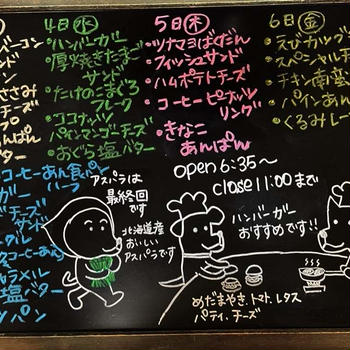 4日(水)
・ハンバーガー
・厚焼きたまご
サンド
・たけのこまぐろ
フレーク
・ココナッツ
パインマンゴチーズ
・おぐら塩バター
5日(木)
・ツナマヨばくだん
・フィッシュサンド
・ハムポテトチーズ
・コーヒーピーナッツ
リング
・きなこ
あんぱん
6日(金)
・えびカツ
・スペシャル
チキン南蛮
・パインあん
・くるみレー
バーコン
ささみ
チーズ
あんぱん
バター
ココーヒーあん食パン
ハーフ
ガー
チーズ
サンド
ラメル
塩バター
パン
open 6:35〜
close 11:00まで
アスパラは
最終回
です
北海道産
おいしい
アスパラです
ハンバーガー
おすすめです!!
めだまやき、トマト、レタス
パティ、チーズ